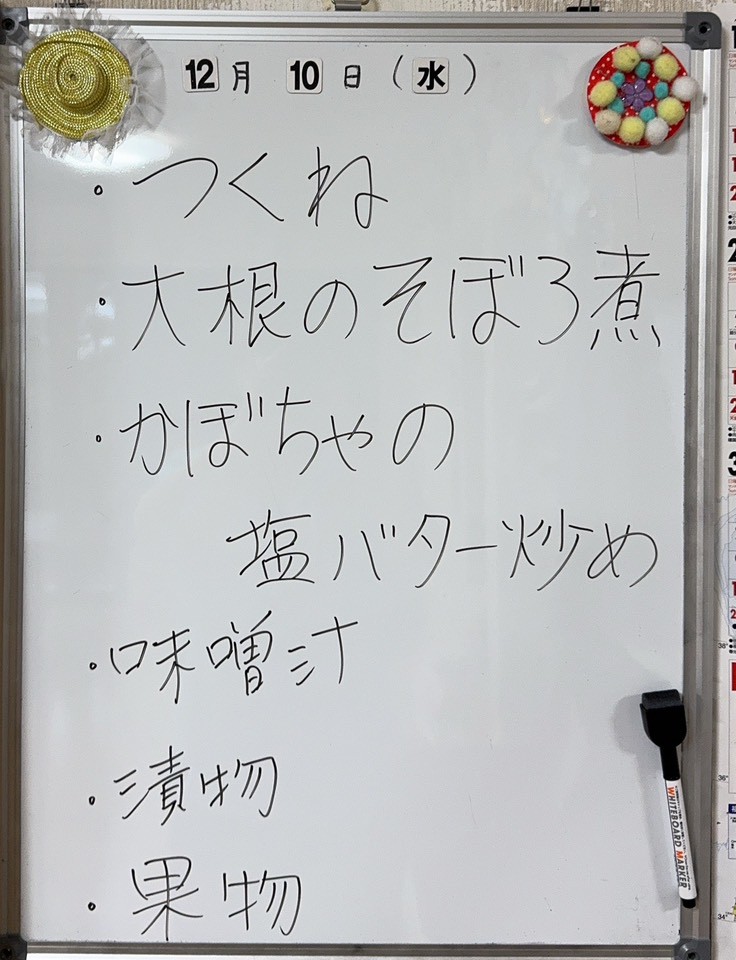 12月 10日(水)
・つくね
・大根のそぼろ煮
・かぼちゃの
塩バター炒め
・味噌汁
・漬物
・果物
WHITEBOARD MARKER